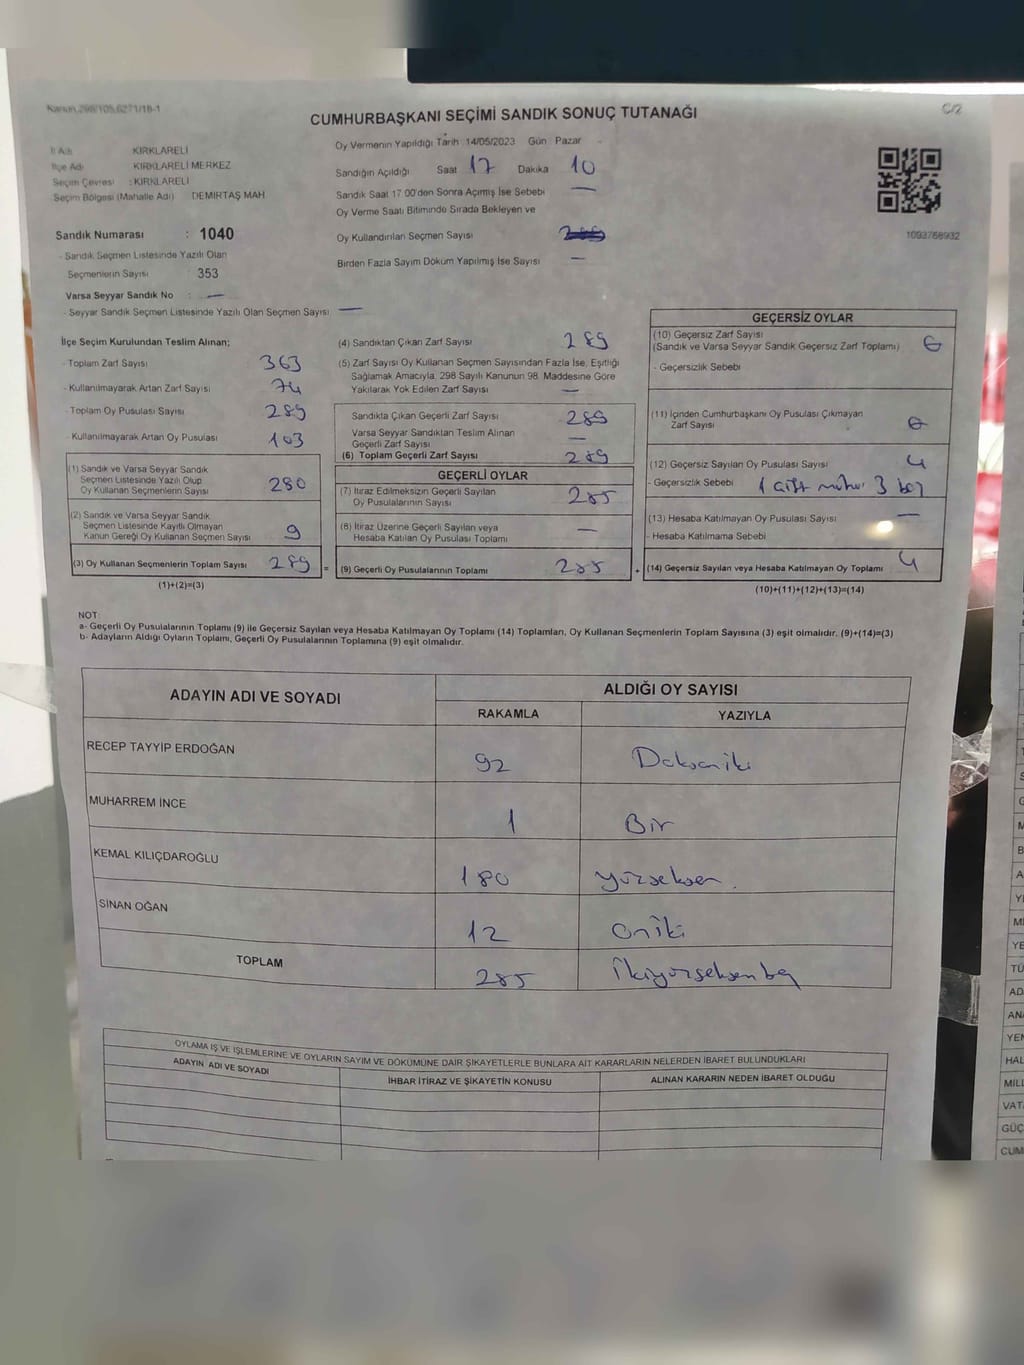 Kanun.298/105,6271/18-1
C/2
CUMHURBAŞKANI SEÇİMİ SANDIK SONUÇ TUTANAĞI
İl Adı KIRKLARELİ
İlçe Adı KIRKLARELİ MERKEZ
Seçim Çevresi : KIRKLARELİ
Seçim Bölgesi (Mahalle Adı) DEMİRTAŞ MAH
Sandık Numarası : 1040
- Sandık Seçmen Listesinde Yazılı Olan
Seçmenlerin Sayısı 353
Varsa Seyyar Sandık No : —
- Seyyar Sandık Seçmen Listesinde Yazılı Olan Seçmen Sayısı —
Oy Vermenin Yapıldığı Tarih 14/05/2023 Gün Pazar
Sandığın Açıldığı Saat 17 Dakika 10
Sandık Saat 17 00'den Sonra Açımış İse Sebebi —
Oy Verme Saati Bitiminde Sırada Bekleyen ve
Oy Kullandırılan Seçmen Sayısı
Birden Fazla Sayım Döküm Yapılmış İse Sayısı —
1093768932
İlçe Seçim Kurulundan Teslim Alınan;
- Toplam Zarf Sayısı 363
- Kullanılmayarak Artan Zarf Sayısı 74
- Toplam Oy Pusulası Sayısı 289
- Kullanılmayarak Artan Oy Pusulası 103
(1) Sandık ve Varsa Seyyar Sandık
Seçmen Listesinde Yazılı Olup
Oy Kullanan Seçmenlerin Sayısı 280
(2) Sandık ve Varsa Seyyar Sandık
Seçmen Listesinde Kayıtlı Olmayan
Kanun Gereği Oy Kullanan Seçmen Sayısı 9
(3) Oy Kullanan Seçmenlerin Toplam Sayısı 289 =
(1)+(2)=(3)
(4) Sandıktan Çıkan Zarf Sayısı 289
(5) Zarf Sayısı Oy Kullanan Seçmen Sayısından Fazla İse, Eşitliği
Sağlamak Amacıyla, 298 Sayılı Kanunun 98. Maddesine Göre
Yakılarak Yok Edilen Zarf Sayısı —
Sandıkta Çıkan Geçerli Zarf Sayısı 289
Varsa Seyyar Sandıktan Teslim Alınan
Geçerli Zarf Sayısı —
(6) Toplam Geçerli Zarf Sayısı 289
GEÇERLİ OYLAR
(7) İtiraz Edilmeksizin Geçerli Sayılan
Oy Pusulalarının Sayısı 285
(8) İtiraz Üzerine Geçerli Sayılan veya
Hesaba Katılan Oy Pusulası Toplamı —
(9) Geçerli Oy Pusulalarının Toplamı 285 +
GEÇERSİZ OYLAR
(10) Geçersiz Zarf Sayısı
(Sandık ve Varsa Seyyar Sandık Geçersiz Zarf Toplamı)
- Geçersizlik Sebebi
(11) İçinden Cumhurbaşkanı Oy Pusulası Çıkmayan
Zarf Sayısı
(12) Geçersiz Sayılan Oy Pusulası Sayısı 4
- Geçersizlik Sebebi 1 çift mühür 3 boş
(13) Hesaba Katılmayan Oy Pusulası Sayısı —
- Hesaba Katılmama Sebebi
(14) Geçersiz Sayılan veya Hesaba Katılmayan Oy Toplamı 4
(10)+(11)+(12)+(13)=(14)
NOT:
a- Geçerli Oy Pusulalarının Toplamı (9) ile Geçersiz Sayılan veya Hesaba Katılmayan Oy Toplamı (14) Toplamları, Oy Kullanan Seçmenlerin Toplam Sayısına (3) eşit olmalıdır. (9)+(14)=(3)
b- Adayların Aldığı Oyların Toplamı, Geçerli Oy Pusulalarının Toplamına (9) eşit olmalıdır.
ADAYIN ADI VE SOYADI ALDIĞI OY SAYISI
RAKAMLA YAZIYLA
RECEP TAYYİP ERDOĞAN 92 Doksaniki
MUHARREM İNCE 1 Bir
KEMAL KILIÇDAROĞLU 180 yüzseksen.
SİNAN OĞAN 12 oniki
TOPLAM 285 ikiyüzseksenbeş
OYLAMA İŞ VE İŞLEMLERİNE VE OYLARIN SAYIM VE DÖKÜMÜNE DAİR ŞİKAYETLERLE BUNLARA AİT KARARLARIN NELERDEN İBARET BULUNDUKLARI
ADAYIN ADI VE SOYADI İHBAR İTİRAZ VE ŞİKAYETİN KONUSU ALINAN KARARIN NEDEN İBARET OLDUĞU